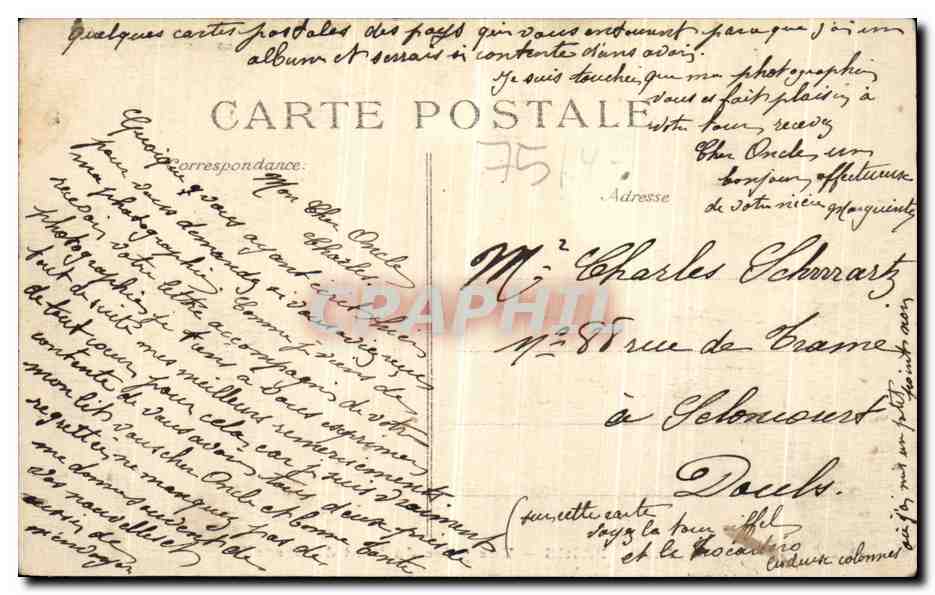 Quelques cartes postales des pays qui vous entourent para que j'ai un
album et serrais si contente d'ans avoir.
Je suis touchée que ma photographie
vous es fait plaisir à
votre tour recevez
Cher Oncle un
bonjour affectueuse
de votre nièce Marguerite
CARTE POSTALE
75
Correspondance:
Adresse
Mon Cher Oncle
Charles
Quoique vous ayant
pour vous demandez si vous
ma photographie Comme je viens de
recevoir votre lettre accompagnée de votre
photographie je tiens à vous exprimer
tout de suite mes meilleurs remerciements
de tout cœur pour cela, car je suis vraiment
contente de vous avoir tous deux près de
mon lit vous cher Oncle et bonne Tante
regrettée ne manquez pas de
me donner souvent de
vos nouvelles et
CRAPHIL
Mr. Charles Schwartz
No 86 rue de Trame
à Seloncourt
Doubs.
(sur cette carte
voyez la tour eiffel
et le trocadéro
en deux colonnes
ou j'ai mis un petit point noir